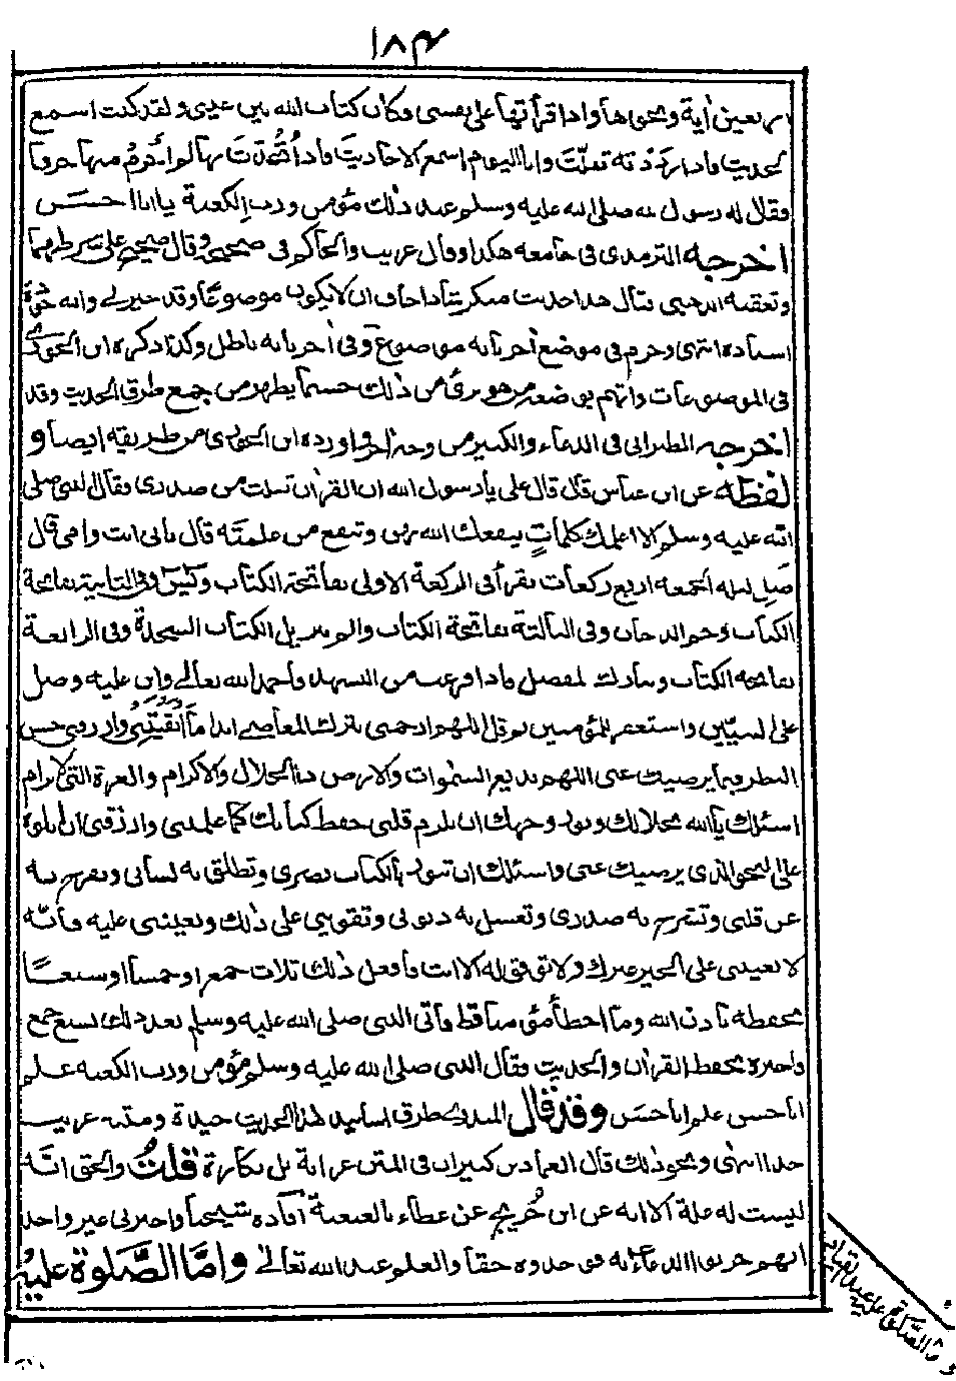 ١٨٤
اربعين اٰية ونحوها واذا قرأتها على نفسى وكان كتاب الله بين عينى ولقد كنت اسمع
الحديث فاذا رددته تفلت وانا اليوم اسمع الاحاديث فاذا تحدثت بها لم اخرم منها حرفا
فقال له رسول الله صلى الله عليه وسلم عند ذلك مؤمن ورب الكعبة يا ابا الحسن
اخرجه الترمذى فى جامعه هكذا وقال غريب والحاكم فى صحيحه وقال صحيح على شرطهما
وتعقبه الذهبى فقال هذا حديث منكر شاذ اخاف ان لا يكون موضوعا وقد حيرنى والله جودة
اسناده انتهى وجزم فى موضع اٰخر بانه موضوع وفى اٰخر بانه باطل وكذا ذكره ابن الجوزى
فى الموضوعات واتهم بوضعه من هو برئ من ذلك حسبما يظهر من جمع طرق الحديث وقد
اخرجه الطبرانى فى الدعاء والكبير من وجه اٰخر واورده ابن الجوزى من طريقه ايضا و
لفظه عن ابن عباس قال قال على يا رسول الله ان القراٰن تفلت من صدرى فقال النبى صلى
الله عليه وسلم الا اعلمك كلمات ينفعك الله بهن وتنفع من علمته قال بابى انت وامى قال
صل ليلة الجمعة اربع ركعات تقرأ فى الركعة الاولى بفاتحة الكتاب ويٰس وفى الثانية بفاتحة
الكتاب وحم الدخان وفى الثالثة بفاتحة الكتاب والم تنزيل الكتاب السجدة وفى الرابعة
بفاتحة الكتاب وتبارك المفصل فاذا فرغت من التشهد فاحمد الله تعالى واثن عليه وصل
على النبيين واستغفر للمؤمنين ثم قل اللهم ارحمنى بترك المعاصى ابدا ما ابقيتنى وارزقنى حسن
النظر فيما يرضيك عنى اللهم بديع السمٰوات والارض ذا الجلال والاكرام والعزة التى لا ترام
اسئلك يا الله بجلالك ونور وجهك ان تلزم قلبى حفظ كتابك كما علمتنى وارزقنى ان اتلوه
على النحو الذى يرضيك عنى واسئلك ان تنور بالكتاب بصرى وتطلق به لسانى وتفرج به
عن قلبى وتشرح به صدرى وتغسل به ذنوبى وتقوينى على ذلك وتعيننى عليه فانه
لا يعيننى على الخير غيرك ولا يوفق له الا انت فافعل ذلك ثلاث جمع او خمسا او سبعًا
تحفظه باذن الله وما اخطأ مؤمنا قط فاتى النبى صلى الله عليه وسلم بعد ذلك بسبع جمع
واخبره بحفظ القراٰن والحديث فقال النبى صلى الله عليه وسلم مؤمن ورب الكعبة علم
ابا حسن علم ابا حسن وقد قال المنذرى طرق اسانيد هذا الحديث جيدة ومتنه غريب
جدا انتهى ونحو ذلك قال العماد بن كثير ان فى المتن غرابة بل نكارة قلتُ والحق انه
ليست له علة الا انه عن ابن جُريج عن عطاء بالعنعنة افاده شيخنا واخبرنى غير واحد
انهم جربوا الدعاء به فوجدوه حقا والعلم عند الله تعالىٰ واما الصَّلوٰة عليه
واما الصلوٰة عليه عند القيام